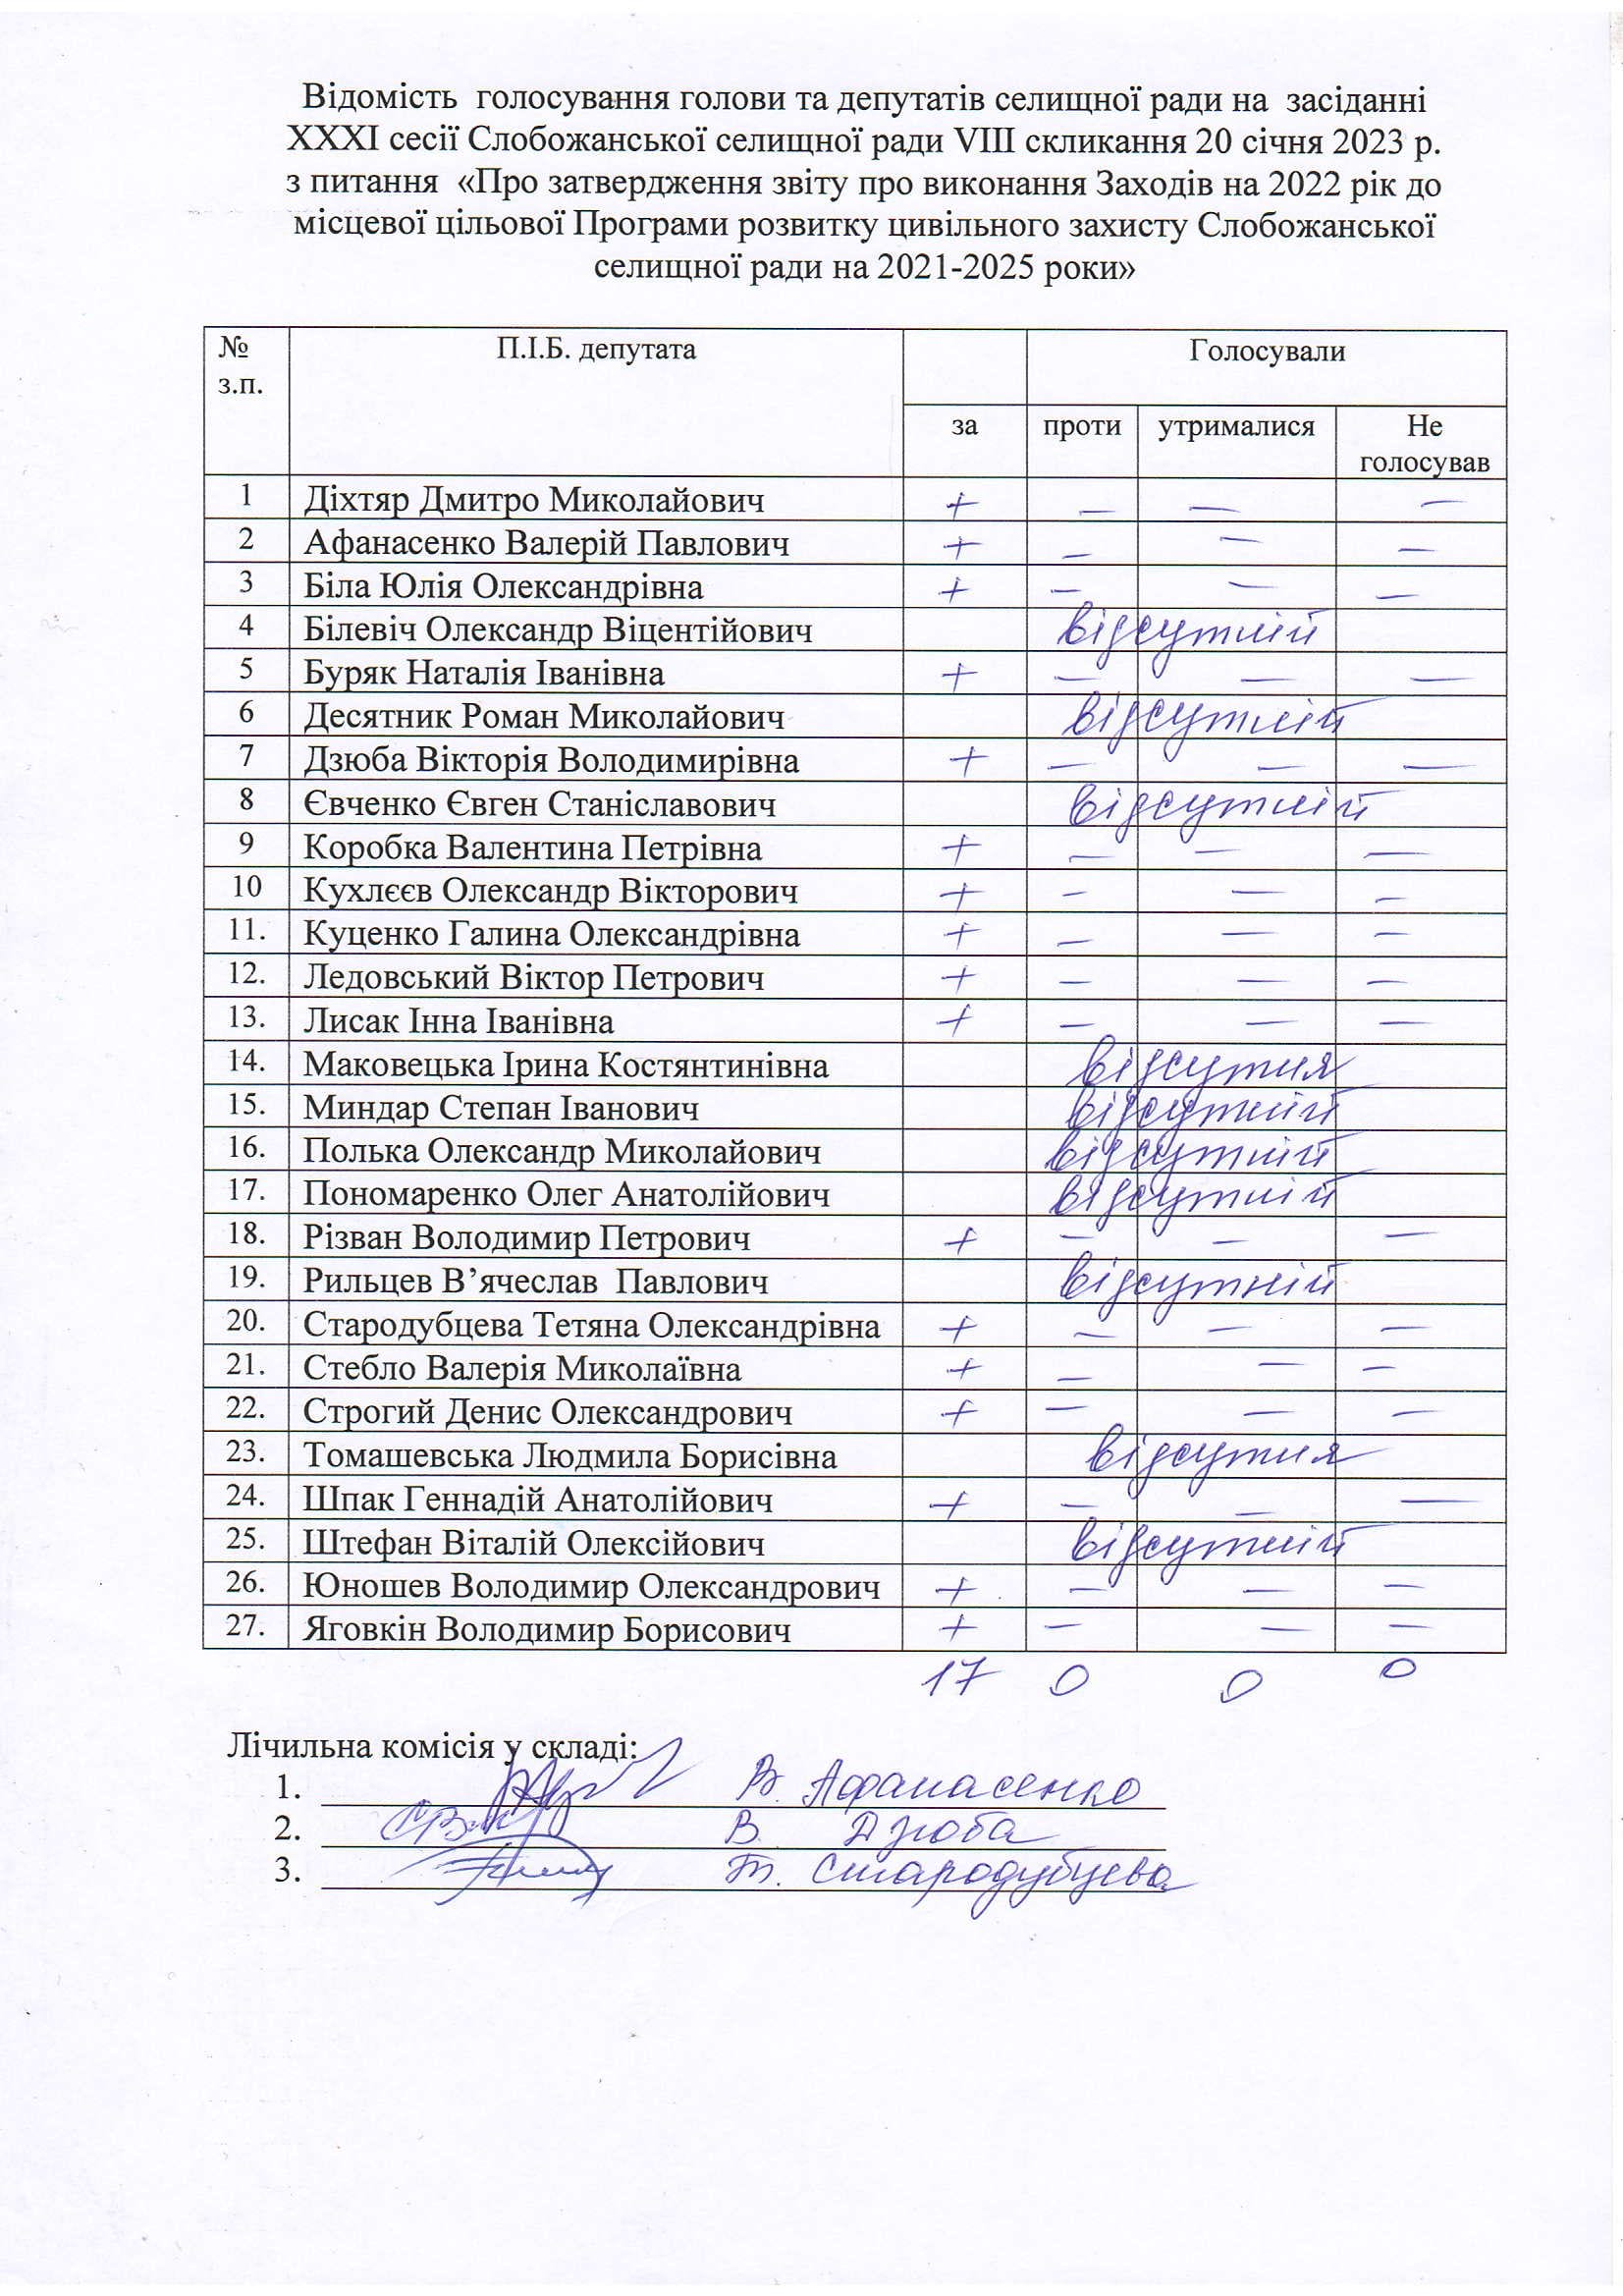 Відомість голосування голови та депутатів селищної ради на засіданні
XXXI сесії Слобожанської селищної ради VIII скликання 20 січня 2023 р.
з питання «Про затвердження звіту про виконання Заходів на 2022 рік до
місцевої цільової Програми розвитку цивільного захисту Слобожанської
селищної ради на 2021-2025 роки»
№ з.п. П.І.Б. депутата Голосували
за проти утрималися Не голосував
1 Діхтяр Дмитро Миколайович + — — —
2 Афанасенко Валерій Павлович + — — —
3 Біла Юлія Олександрівна + — — —
4 Білевіч Олександр Віцентійович відсутній
5 Буряк Наталія Іванівна + — — —
6 Десятник Роман Миколайович відсутній
7 Дзюба Вікторія Володимирівна + — — —
8 Євченко Євген Станіславович відсутній
9 Коробка Валентина Петрівна + — — —
10 Кухлєєв Олександр Вікторович + — — —
11. Куценко Галина Олександрівна + — — —
12. Ледовський Віктор Петрович + — — —
13. Лисак Інна Іванівна + — — —
14. Маковецька Ірина Костянтинівна відсутня
15. Миндар Степан Іванович відсутній
16. Полька Олександр Миколайович відсутній
17. Пономаренко Олег Анатолійович відсутній
18. Різван Володимир Петрович + — — —
19. Рильцев В’ячеслав Павлович відсутній
20. Стародубцева Тетяна Олександрівна + — — —
21. Стебло Валерія Миколаївна + — — —
22. Строгий Денис Олександрович + — — —
23. Томашевська Людмила Борисівна відсутня
24. Шпак Геннадій Анатолійович + — — —
25. Штефан Віталій Олексійович відсутній
26. Юношев Володимир Олександрович + — — —
27. Яговкін Володимир Борисович + — — —
17 0 0 0
Лічильна комісія у складі:
1. В. Афанасенко
2. В. Дзюба
3. Т. Стародубцева